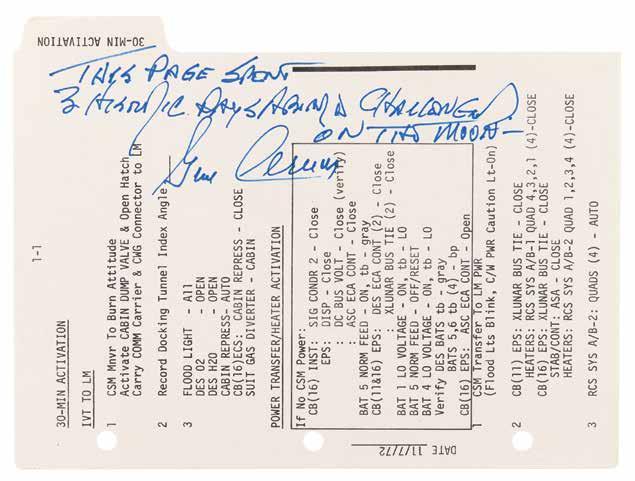 30-MIN ACTIVATION
THIS PAGE SPENT
3 HISTORIC DAYS ABOARD CHALLENGER
ON THE MOON -
Gene Cernan
1-1
30-MIN ACTIVATION
IVT TO LM
1 CSM Mnvr To Burn Attitude
Activate CABIN DUMP VALVE & Open Hatch
Carry COMM Carrier & CWG Connector to LM
2 Record Docking Tunnel Index Angle
3 FLOOD LIGHT - All
DES O2 - OPEN
DES H2O - OPEN
CABIN REPRESS- AUTO
CB(16)ECS: CABIN REPRESS - CLOSE
SUIT GAS DIVERTER - CABIN
POWER TRANSFER/HEATER ACTIVATION
If No CSM Power:
CB(16) INST: SIG CONDR 2 - Close
EPS: DISP - Close
: DC BUS VOLT - Close (verify)
: ASC ECA CONT - Close
BAT 5 NORM FEED - ON, tb - gray
CB(11&16) EPS: DES ECA CONT (2) - Close
: XLUNAR BUS TIE (2) - Close
BAT 1 LO VOLTAGE - ON, tb - LO
BAT 5 NORM FEED - OFF/RESET
BAT 4 LO VOLTAGE - ON, tb - LO
Verify DES BATS tb - gray
BATS 5,6 tb (4) - bp
CB(16) EPS: ASC ECA CONT - Open
1 CSM Transfer To LM PWR
(Flood Lts Blink, C/W PWR Caution Lt-On)
2 CB(11) EPS: XLUNAR BUS TIE - CLOSE
HEATERS: RCS SYS A/B-1 QUAD 4,3,2,1 (4)-CLOSE
CB(16) EPS: XLUNAR BUS TIE - CLOSE
STAB/CONT: ASA - CLOSE
HEATERS: RCS SYS A/B-2 QUAD 1,2,3,4 (4)-CLOSE
3 RCS SYS A/B-2: QUADS (4) - AUTO
DATE 11/7/72